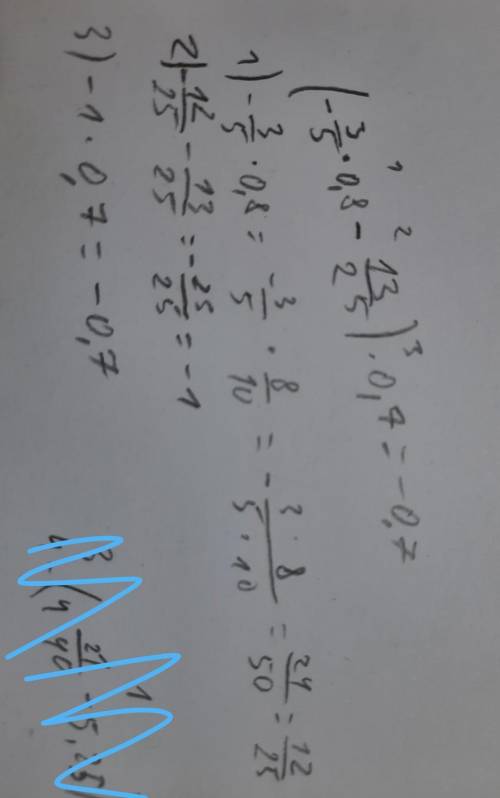 (-3/5 · 0,8 - 13/25) · 0,7 = -0,7
1) -3/5 · 0,8 = -3/5 · 8/10 = -3·8/5·10 = 24/50 = 12/25
2) -12/25 - 13/25 = -25/25 = -1
3) -1 · 0,7 = -0,7